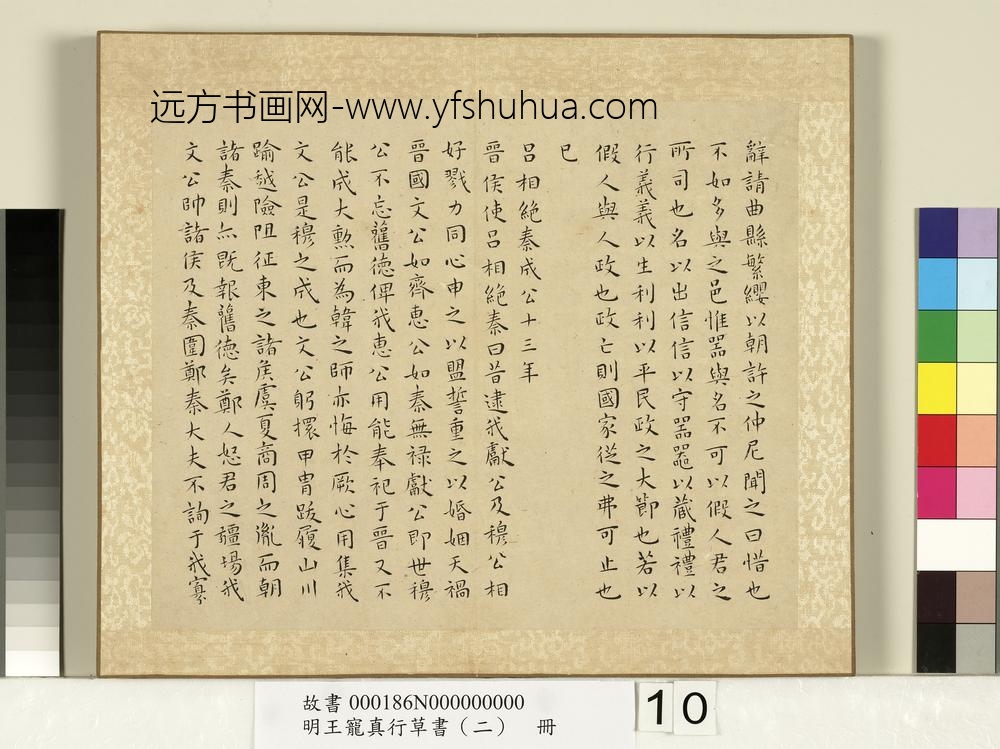 远方书画网-www.yfshuhua.com
辭請曲縣繁纓以朝許之仲尼聞之曰惜也
不如多與之邑惟噐與名不可以假人君之
所司也名以出信信以守噐噐以藏禮禮以
行義義以生利利以平民政之大節也若以
假人與人政也政亡則國家從之弗可止也
已
吕相絶秦成公十三年
晉侯使吕相絶秦曰昔逮我獻公及穆公相
好戮力同心申之以盟誓重之以婚姻天禍
晉國文公如齊惠公如秦無禄獻公即世穆
公不忘舊德俾我惠公用能奉祀于晉又不
能成大勲而為韓之師亦悔於厥心用集我
文公是穆之成也文公躬擐甲冑跋履山川
踰越險阻征東之諸侯虞夏商周之胤而朝
諸秦則亦既報舊德矣鄭人怒君之疆場我
文公帥諸侯及秦圍鄭秦大夫不詢于我寡
故書 000186N000000000
明王寵真行草書（二） 冊
10